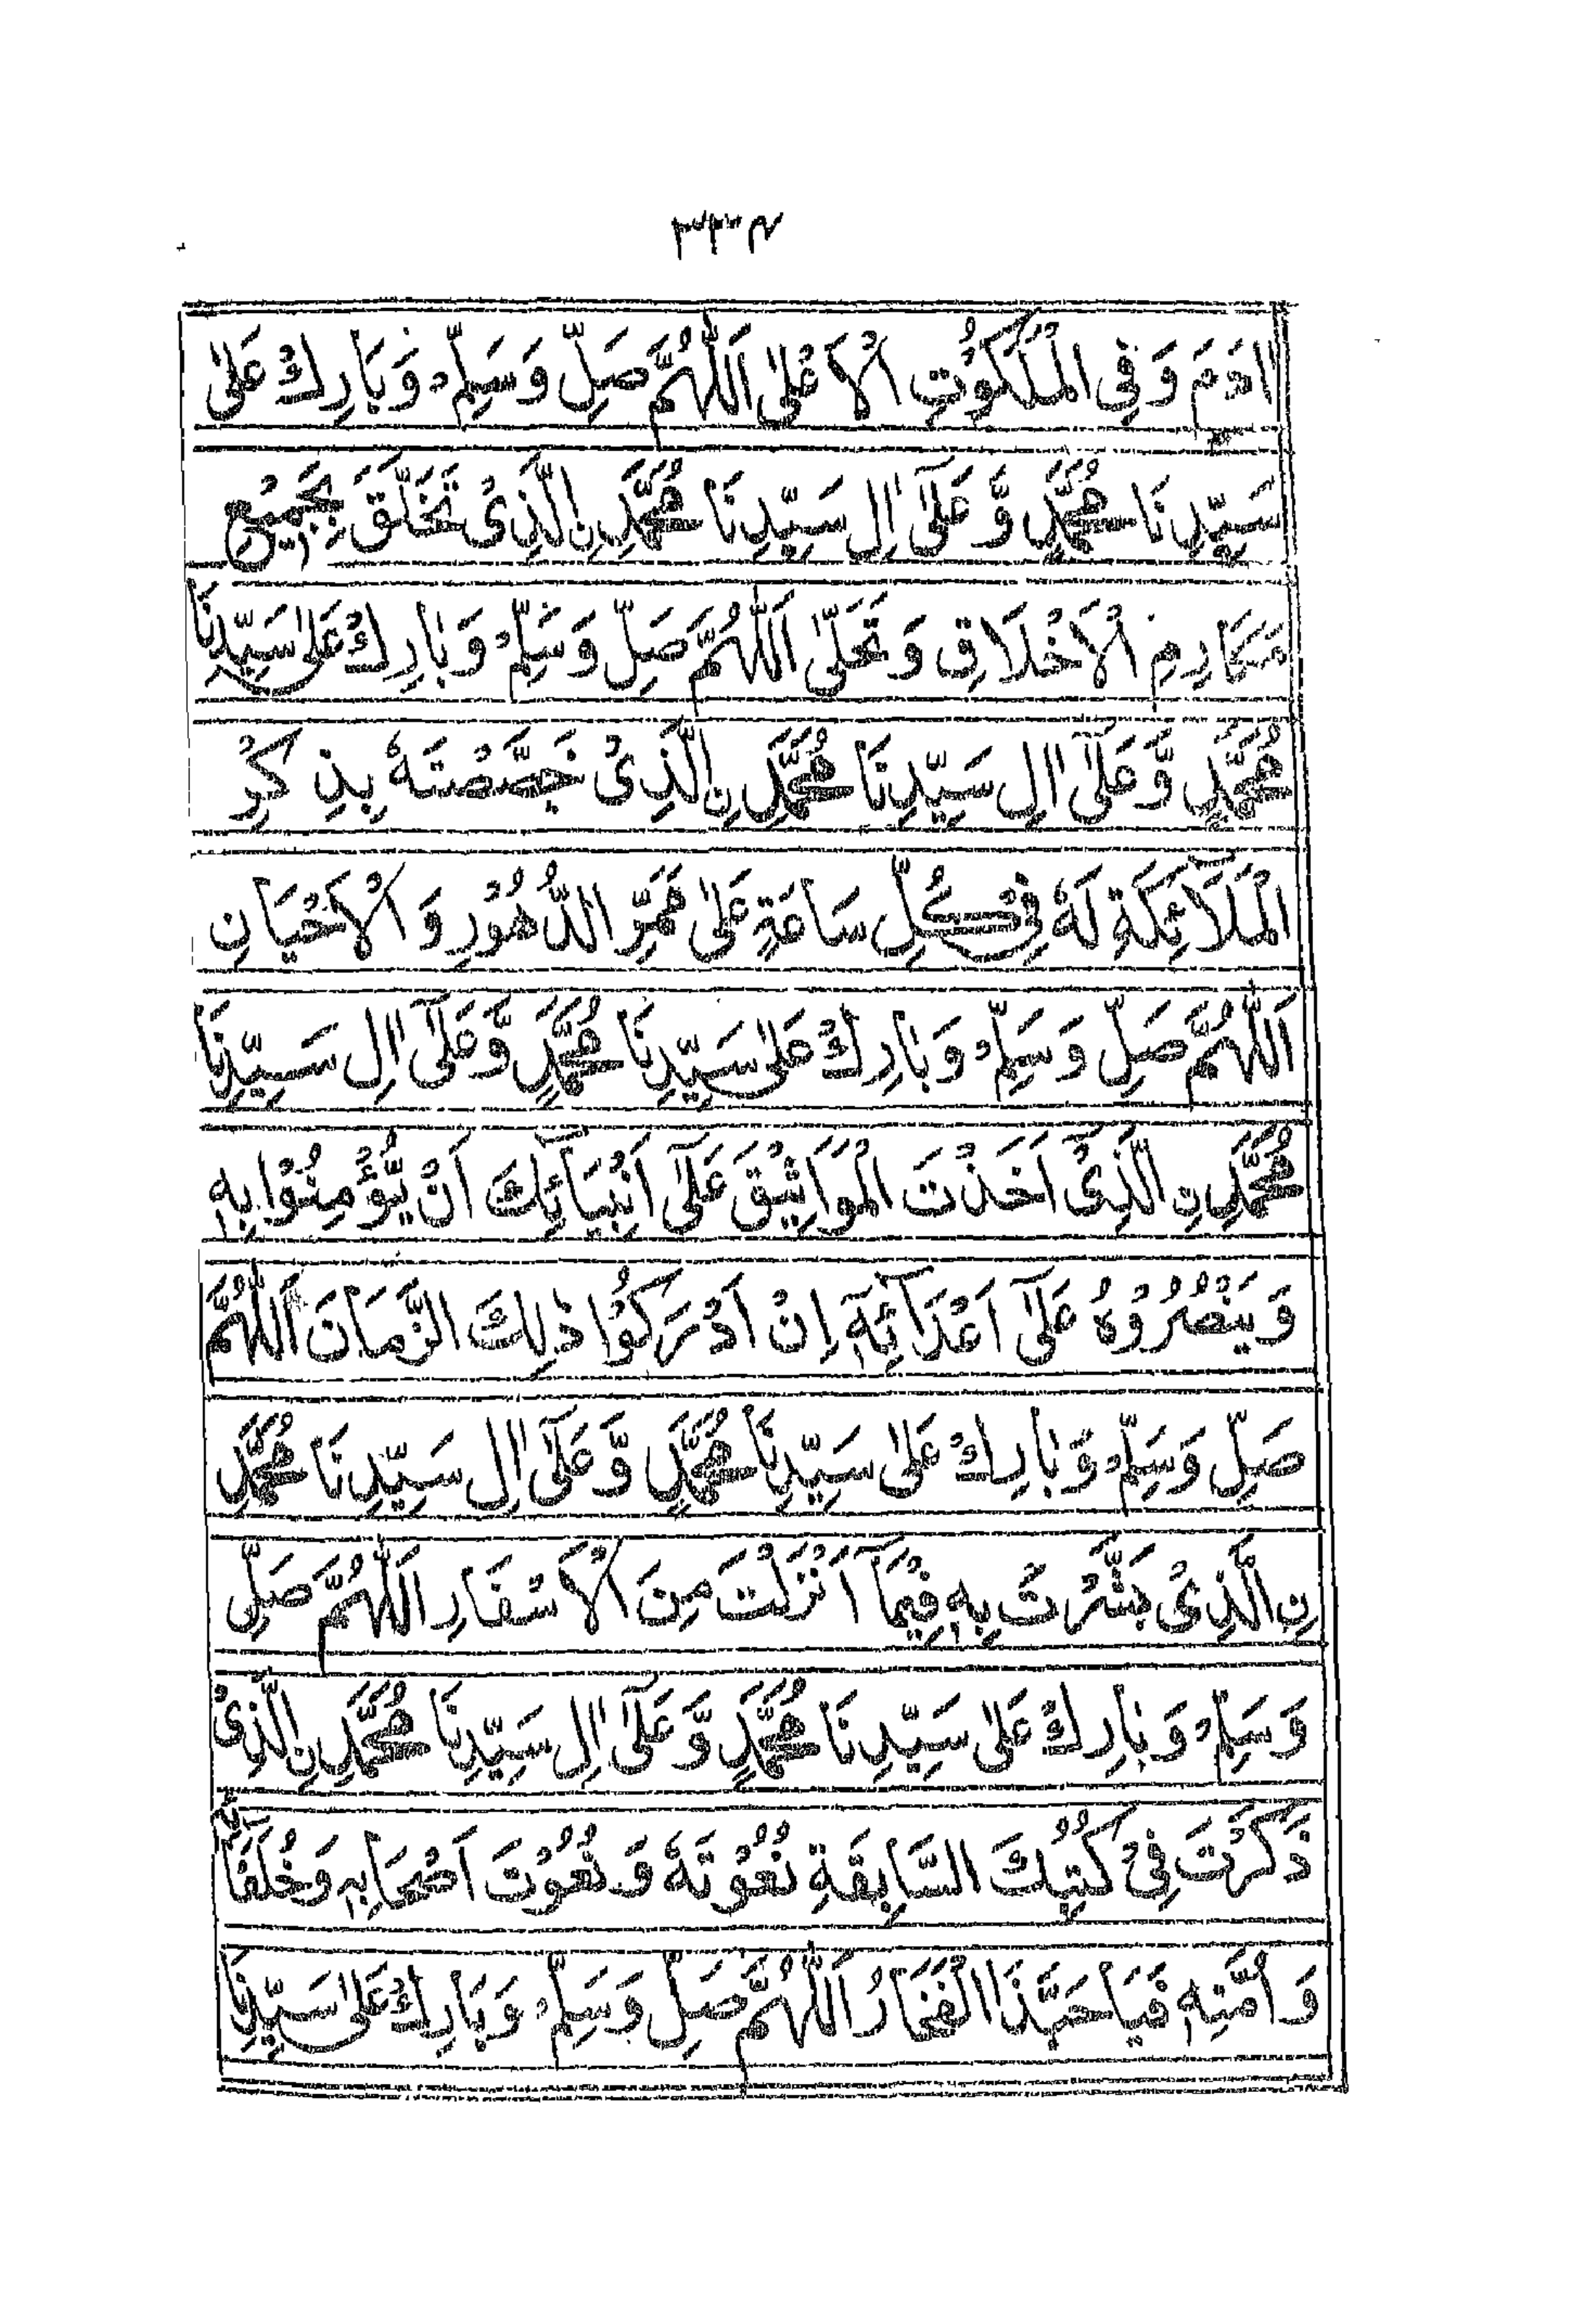 اٰدَمَ وَفِی الْمَلَكُوْتِ الْاَعْلٰی اَللّٰهُمَّ صَلِّ وَسَلِّمْ وَبَارِكْ عَلٰی
سَیِّدِنَا مُحَمَّدٍ وَّعَلٰٓی اٰلِ سَیِّدِنَا مُحَمَّدِ نِ الَّذِیْ تَخَلَّقَ بِجَمِیْعِ
مَكَارِمِ الْاَخْلَاقِ وَتَحَلّٰی اَللّٰهُمَّ صَلِّ وَسَلِّمْ وَبَارِكْ عَلٰی سَیِّدِنَا
مُحَمَّدٍ وَّعَلٰٓی اٰلِ سَیِّدِنَا مُحَمَّدِ نِ الَّذِیْ خَصَّصْتَهٗ بِذِكْرِ
الْمَلَآئِكَةِ لَهٗ فِیْ كُلِّ سَاعَةٍ عَلٰی مَمَرِّ الدُّهُوْرِ وَالْاَحْیَانِ
اَللّٰهُمَّ صَلِّ وَسَلِّمْ وَبَارِكْ عَلٰی سَیِّدِنَا مُحَمَّدٍ وَّعَلٰٓی اٰلِ سَیِّدِنَا
مُحَمَّدِ نِ الَّذِیْٓ اَخَذْتَ الْمَوَاثِیْقَ عَلٰٓی اَنْبِیَآئِكَ اَنْ یُّؤْمِنُوْا بِهٖ
وَیَنْصُرُوْهُ عَلٰٓی اَعْدَآئِهٖٓ اِنْ اَدْرَكُوْا ذٰلِكَ الزَّمَانَ اَللّٰهُمَّ
صَلِّ وَسَلِّمْ وَبَارِكْ عَلٰی سَیِّدِنَا مُحَمَّدٍ وَّعَلٰٓی اٰلِ سَیِّدِنَا مُحَمَّدِ
نِ الَّذِیْ بَشَّرْتَ بِهٖ فِیْمَآ اَنْزَلْتَ مِنَ الْاَسْفَارِ اَللّٰهُمَّ صَلِّ
وَسَلِّمْ وَبَارِكْ عَلٰی سَیِّدِنَا مُحَمَّدٍ وَّعَلٰٓی اٰلِ سَیِّدِنَا مُحَمَّدِ نِ الَّذِیْ
ذَكَرْتَ فِیْ كُتُبِكَ السَّابِقَةِ نُعُوْتَهٗ وَنُعُوْتَ اَصْحَابِهٖ وَخُلَفَآئِهٖ
وَاُمَّتِهٖ فَیَا حَبَّذَا الْفَخَارُ اَللّٰهُمَّ صَلِّ وَسَلِّمْ وَبَارِكْ عَلٰی سَیِّدِنَا